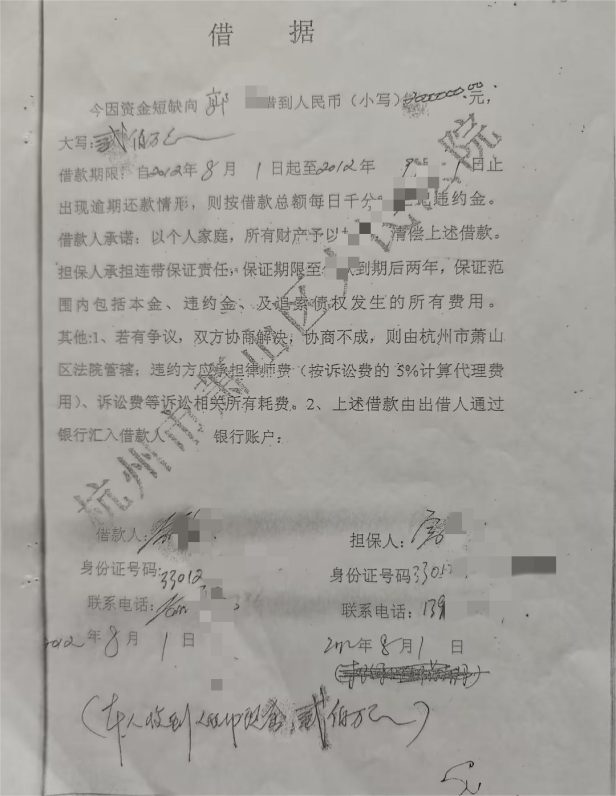 借 据
今因资金短缺向 郭 借到人民币（小写） 000000.00元，
大写：贰佰万元
借款期限：自2012年8月1日起至2012年9 1日止
出现逾期还款情形，则按借款总额每日千分 违约金。
借款人承诺：以个人家庭，所有财产予以 清偿上述借款。
担保人承担连带保证责任，保证期限至 款到期后两年，保证范
围内包括本金、违约金、及追索债权发生的所有费用。
其他:1、若有争议，双方协商解决，协商不成，则由杭州市萧山
区法院管辖；违约方应承担律师费（按诉讼费的5%计算代理费
用）、诉讼费等诉讼相关所有耗费。2、上述借款由出借人通过
银行汇入借款人 银行账户：
杭州市萧山区人 院
借款人： 担保人：
身份证号码:33012 身份证号码330
联系电话： 联系电话：139
2012年8月1日 2012年8月1日
（本人收到人民币现金贰佰万元）